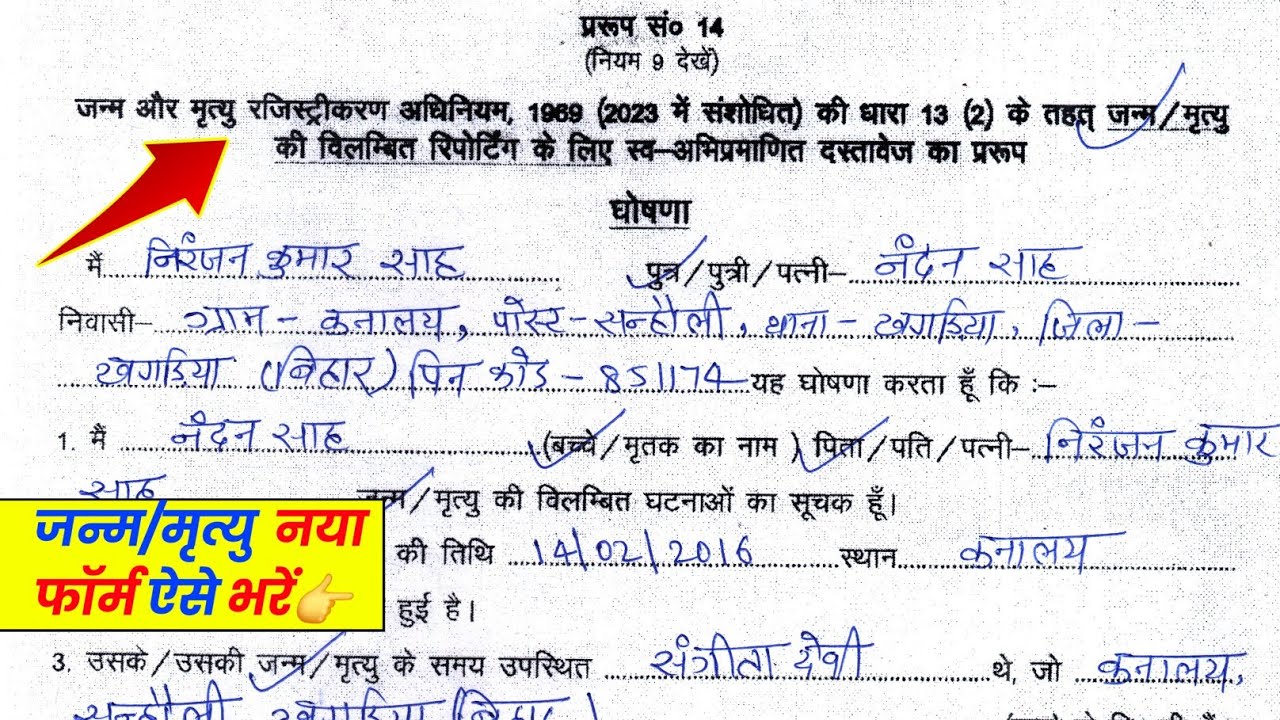 प्ररूप सं० 14
(नियम 9 देखें)
जन्म और मृत्यु रजिस्ट्रीकरण अधिनियम, 1969 (2023 में संशोधित) की धारा 13 (2) के तहत् जन्म/मृत्यु
की विलम्बित रिपोर्टिंग के लिए स्व-अभिप्रमाणित दस्तावेज का प्ररूप
घोषणा
मैं निरंजन कुमार साह पुत्र/पुत्री/पत्नी- नंदन साह
निवासी- ग्राम - कनालय, पोस्ट - सन्हौली, थाना - खगड़िया, जिला -
खगड़िया (बिहार) पिन कोड - 851174 यह घोषणा करता हूँ कि :-
1. मैं नंदन साह (बच्चे/मृतक का नाम) पिता/पति/पत्नी- निरंजन कुमार
साह जन्म/मृत्यु की विलम्बित घटनाओं का सूचक हूँ।
की तिथि 14/02/2016 स्थान कनालय
हुई है।
3. उसके/उसकी जन्म/मृत्यु के समय उपस्थित संगीता देवी थे, जो कनालय,
सन्हौली, खगड़िया (बिहार)
जन्म/मृत्यु नया
फॉर्म ऐसे भरें